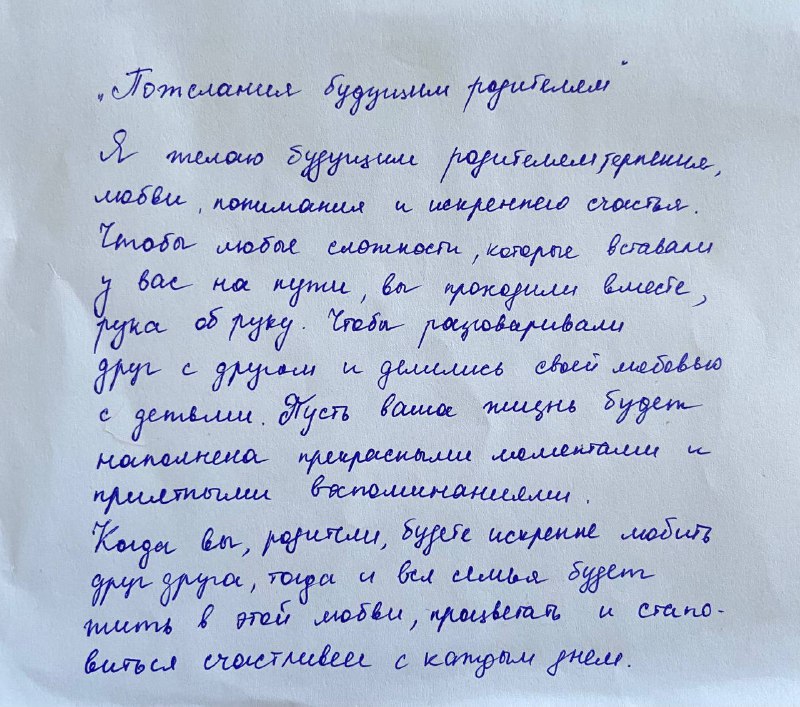 „Пожелания будущим родителям"
Я желаю будущим родителям терпения,
любви, понимания и искреннего счастья.
Чтобы любые сложности, которые вставали
у вас на пути, вы проходили вместе,
рука об руку. Чтобы разговаривали
друг с другом и делились своей любовью
с детьми. Пусть ваша жизнь будет
наполнена прекрасными моментами и
приятными воспоминаниями.
Когда вы, родители, будете искренне любить
друг друга, тогда и вся семья будет
жить в этой любви, процветать и стано-
виться счастливее с каждым днем.